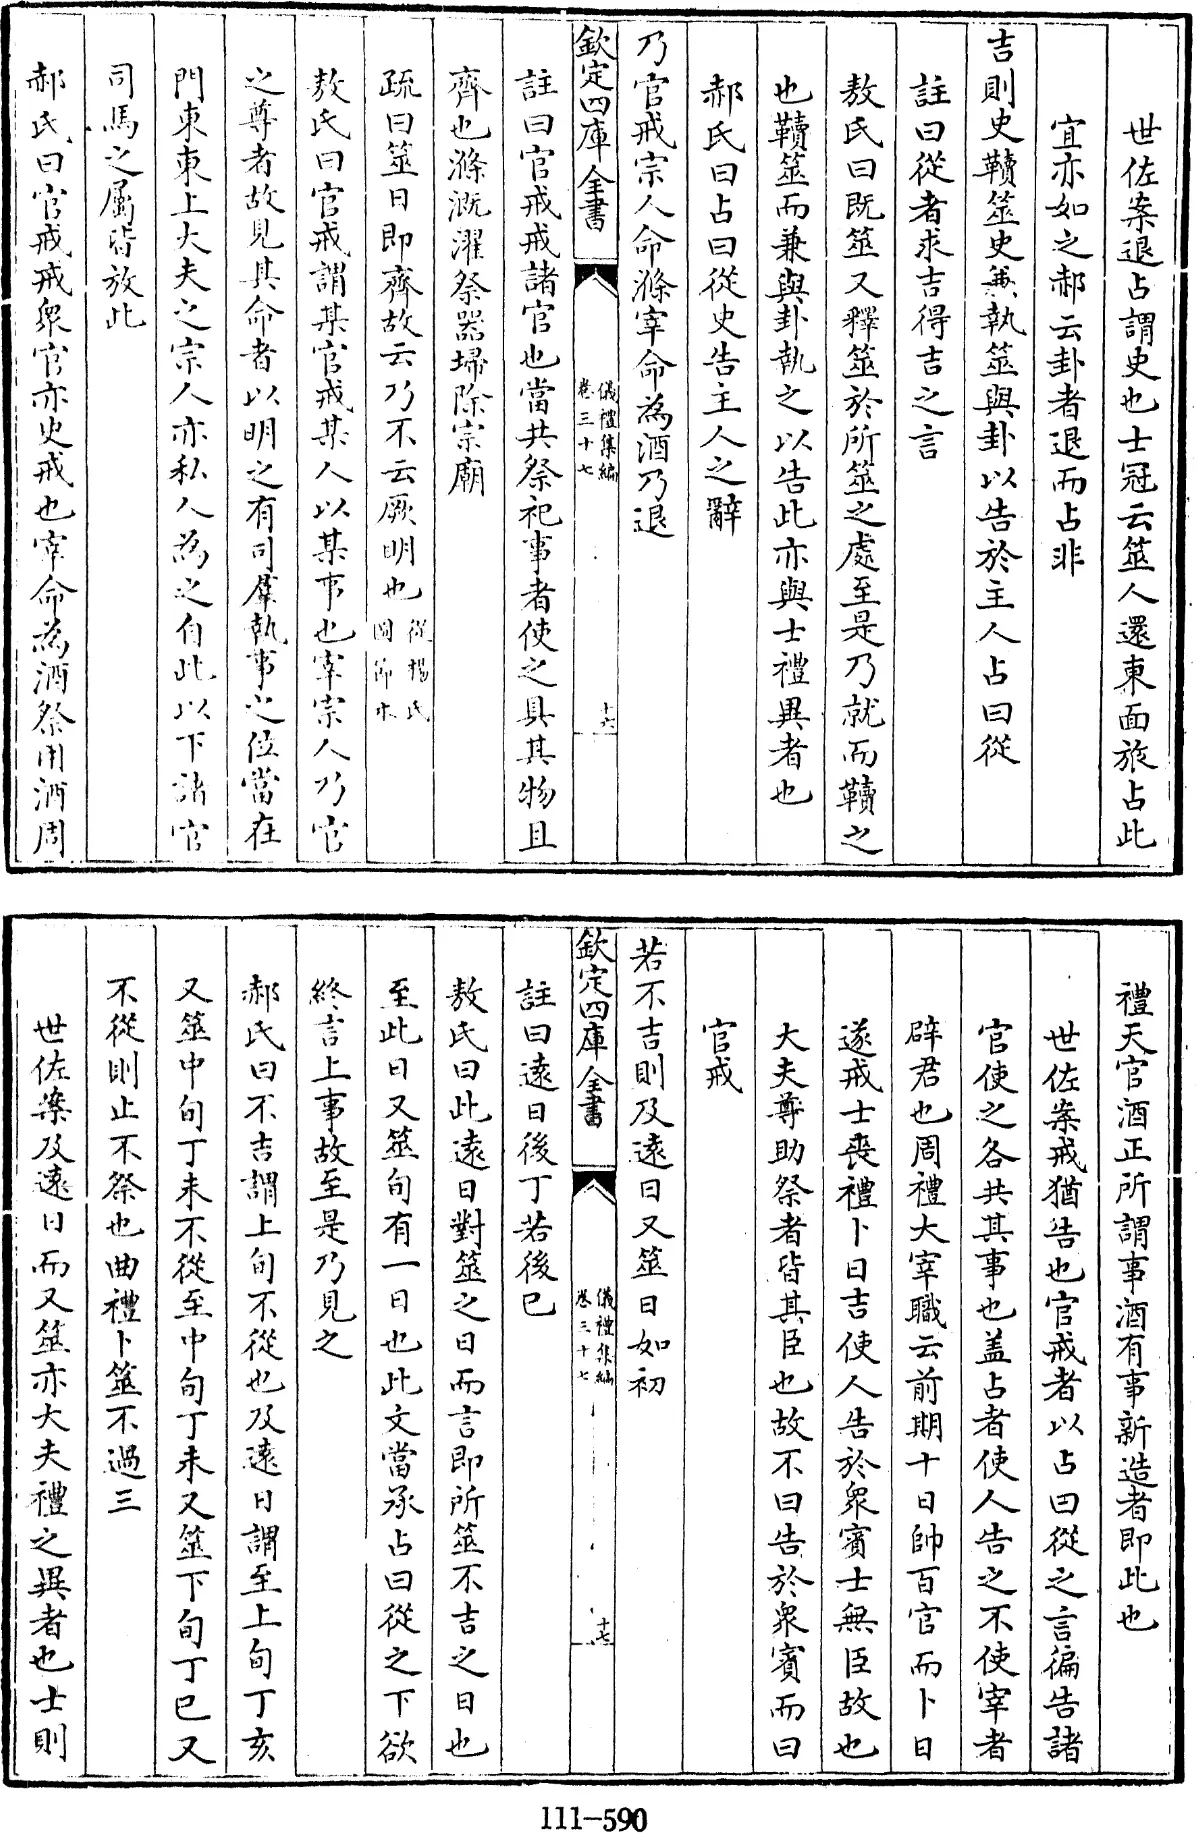 世佐案退占謂史也士冠云筮人還東面旅占此
宜亦如之郝云卦者退而占非
吉則史韇筮史兼執筮與卦以告於主人占曰從
註曰從者求吉得吉之言
敖氏曰既筮又釋筮於所筮之處至是乃就而韇之
也韇筮而兼與卦執之以告此亦與士禮異者也
郝氏曰占曰從史告主人之辭
乃官戒宗人命滌宰命為酒乃退
欽定四庫全書
儀禮集編
卷三十七
十六
註曰官戒戒諸官也當共祭祀事者使之具其物且
齊也滌溉濯祭器埽除宗廟
疏曰筮日即齊故云乃不云厥明也從楊氏
圖節本
敖氏曰官戒謂某官戒某人以某事也宰宗人乃官
之尊者故見其命者以明之有司羣執事之位當在
門東東上大夫之宗人亦私人為之自此以下諸官
司馬之屬皆放此
郝氏曰官戒戒衆官亦史戒也宰命為酒祭用酒周
禮天官酒正所謂事酒有事新造者即此也
世佐案戒猶告也官戒者以占曰從之言徧告諸
官使之各共其事也盖占者使人告之不使宰者
辟君也周禮大宰職云前期十日帥百官而卜日
遂戒士喪禮卜日吉使人告於衆賓士無臣故也
大夫尊助祭者皆其臣也故不曰告於衆賓而曰
官戒
若不吉則及遠日又筮日如初
欽定四庫全書
儀禮集編
卷三十七
十七
註曰遠日後丁若後己
敖氏曰此遠日對筮之日而言即所筮不吉之日也
至此日又筮旬有一日也此文當承占曰從之下欲
終言上事故至是乃見之
郝氏曰不吉謂上旬不從也及遠日謂至上旬丁亥
又筮中旬丁未不從至中旬丁未又筮下旬丁巳又
不從則止不祭也曲禮卜筮不過三
世佐案及遠日而又筮亦大夫禮之異者也士則
111-590